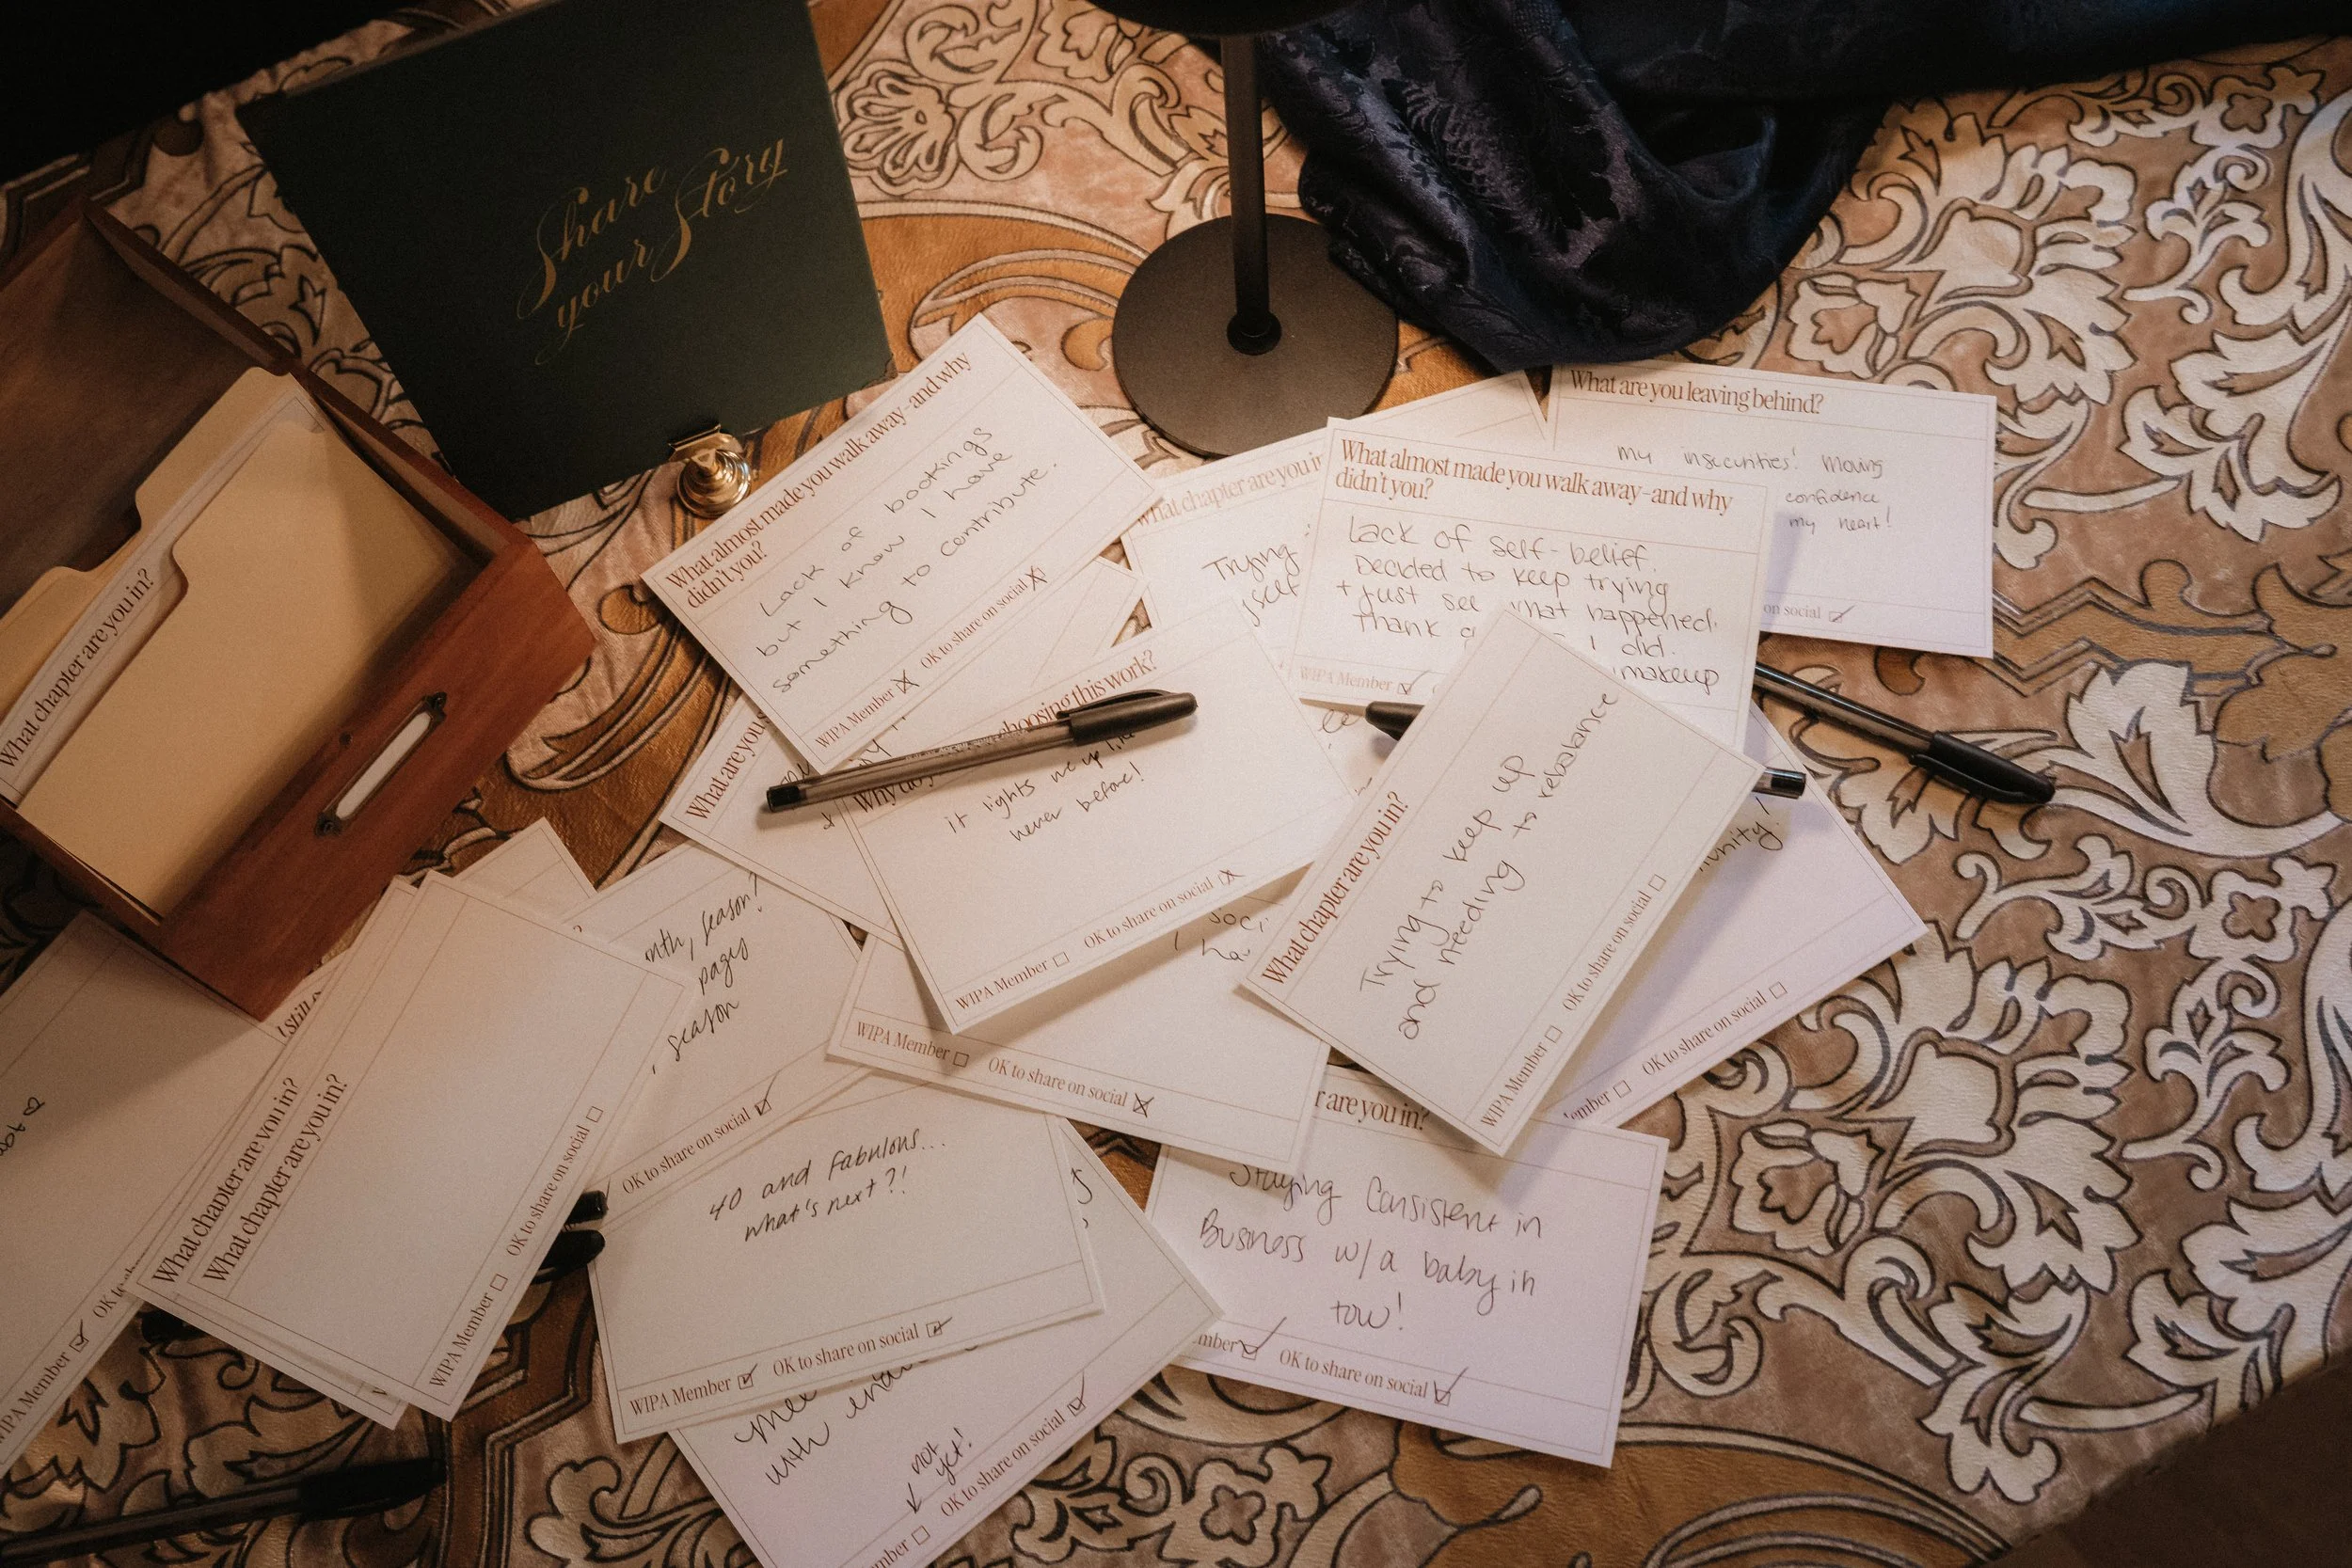 Share
your Story
What almost made you walk away–and why
didn't you?
Lack of bookings
but I know I have
something to contribute.
WIPA Member
OK to share on social
What are you leaving behind?
my insecurities! Moving
confidence
my heart!
on social
What chapter are you in
Trying
What almost made you walk away–and why
didn't you?
Lack of self-belief.
Decided to keep trying
+ just see what happened.
Thank
I did.
makeup
WIPA Member
What chapter are you in?
What are you
choosing this work?
it lights me up
never before!
WIPA Member
OK to share on social
What chapter are you in?
Trying to keep up
and needing to rebalance
WIPA Member
OK to share on social
OK to share on social
season?
pages
season
OK to share on social
WIPA Member
OK to share on social
I still
What chapter are you in?
What chapter are you in?
WIPA Member
OK to share on social
WIPA Member
OK to
40 and fabulous...
what's next?!
WIPA Member
OK to share on social
are you in?
Staying Consistent in
Business w/a baby in
tow!
OK to share on social
with
not
yet!
OK to share on social